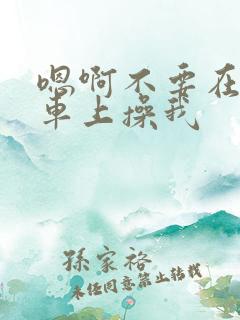 嗯啊不要在
車上操我
孫家裕
未经同意禁止转载